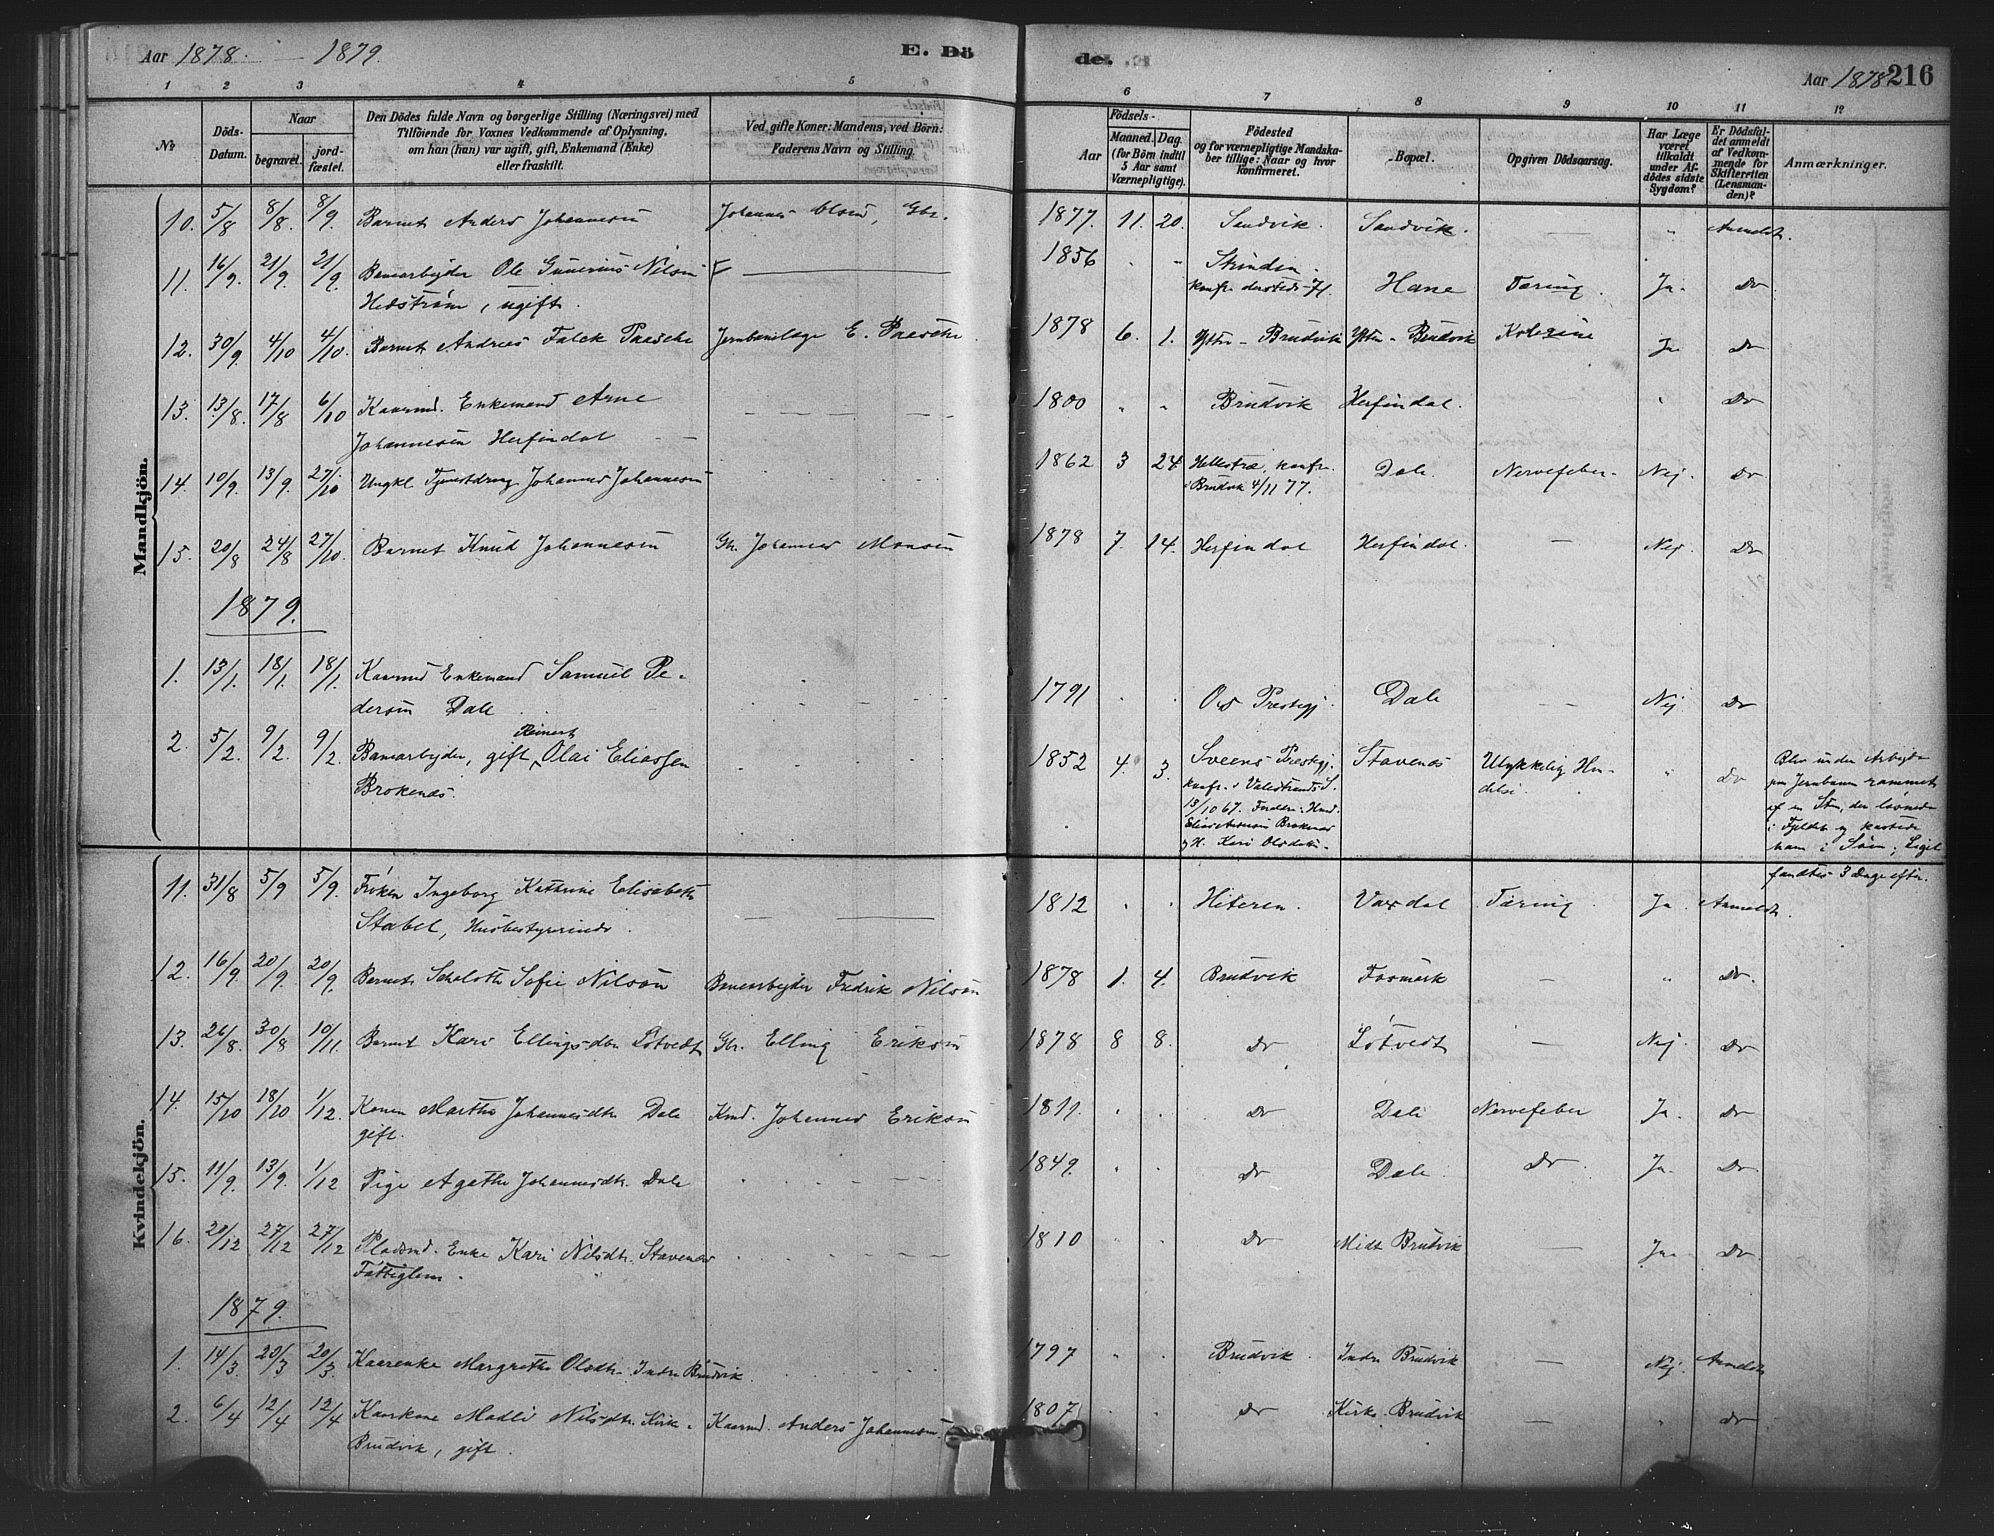 Aar 1878. - 1879.
E. Dö
de.
Aar 1878
216
1 2 3 4 5
6 7 8 9 10 11 12
No
Döds-Datum.
Naar
begravet.
jord-fæstet.
Den Dödes fulde Navn og borgerlige Stilling (Næringsvei) med
Tilföiende for Voxnes Vedkommende af Oplysning,
om han (hun) var ugift, gift, Enkemand (Enke)
eller fraskilt.
Ved gifte Koner: Mandens, ved Börn:
Faderens Navn og Stilling.
Födsels-
Aar
Maaned. Dag.
(for Börn indtil
5 Aar samt
Værnepligtige).
Födested
og for værnepligtige Mandska-
ber tillige: Naar og hvor
konfirmeret.
Bopæl.
Opgiven Dödsaarsag.
Har Læge
været
tilkaldt
under Af-
dödes sidste
Sygdom?
Er Dödsfal-
det anmeldt
af Vedkom-
mende for
Skifteretten
(Lensman-
den)?
Anmærkninger.
Mandkjön.
10. 5/8 8/8. 8/9. Barnet Anders Johannesen Johannes Olsen, Gbr. 1877. 11. 20. Sandvik. Sandvik. — " Anmeldt.
11. 16/9. 21/9. 21/9. Banearbejder Ole Gunerius Nilsen 1856 " " Strinden
Hedstrøm, ugift. Hane Tæring. Ja. Do
12. 30/9 4/10 4/10. Barnet Andreas Falck Paasche E. Paasche. 1878 6. 1. Ytter-Brudvik Ytter-Brudvik Ja Do
13. 13/8. 17/8 6/10 Kaarmd. Enkemand Arne 1800 " " Brudvik Herfindal. " Do
Johannesen Herfindal
14. 10/9. 13/9. 27/10 Ungkl. Tjenestdreng Johannes Johannesen 1862 3 24 konfr. Dale Nervefeber. Nej. Do
i Brudvik 4/11 77.
15. 20/8 24/8 27/10 Barnet Knud Johannesen Gbr. Johannes Monsen 1878 7. 14. Herfindal Herfindal. — Nej. Do
1879.
1. 13/1. 18/1. 18/1. Kaarmd Enkemand Samuel Pe-
dersen Dale 1791 . . Os Prestegj. Dale — Nej Do
2. 5/2. 9/2. 9/2. Banearbejder, gift, Reinert Olai Eliassen 1852 4. 3. Sveens Prestegj. Stavenes Ulykkelig Hæn- " Do Blev under Arbejde
Brokenæs. konfr. i Valestrands S. delse. paa Jernbanen rammet
13/10 67. af en Sten, der løsnede
Brokenæs i Fjeldet og kastede
Kari Olsdatter. ham i Søen; Liget
fandtes 3 Dage efter.
Kvindekjön.
11. 31/8 5/9 5/9. Frøken Ingeborg Kathrine Elisabeth 1812 . . Hiteren. Vaxdal Tæring Ja. Anmeldt.
Stabel, Husbestyrerinde.
12. 16/9. 20/9. 20/9. Barnet Sofie Nilsen Banearbejder Fredrik Nilsen 1878 1. 4. Brudvik Fosmark — " Do.
13. 26/8. 30/8 10/11. Barnet Kari Ellingsdtr Løtvedt Gbr. Elling Eriksen 1878 8 8. Do Løtvedt — Nej. Do
14. 15/10 18/10 1/12. Konen Martha Johannesdtr. Dale Kmd. Johannes Eriksen 1811. . . Do Dale Nervefeber Ja. Do
gift.
15. 11/9. 13/9. 1/12 Pige Agathe Johannesdtr. Dale 1849. . . Do Dale Do. Ja. Do
16. 20/12 27/12 27/12 Pladsmd. Enke Kari Nilsdtr. Stavenes 1810 . . Do Midt Brudvik — Ja. Do
Fattiglem.
1879.
1. 14/3 20/3 20/3. Kaarenke Margrethe Olsdtr. Indre Brudvik. 1797 . . Brudvik. Indre Brudvik — Nej. Anmeldt
2. 6/4 12/4 12/4 Kaarkone Madli Nilsdtr. Kirke- Kaarmd. Anders Johannesen. 1807 Do Kirke-Brudvik — " Do
Brudvik, gift.